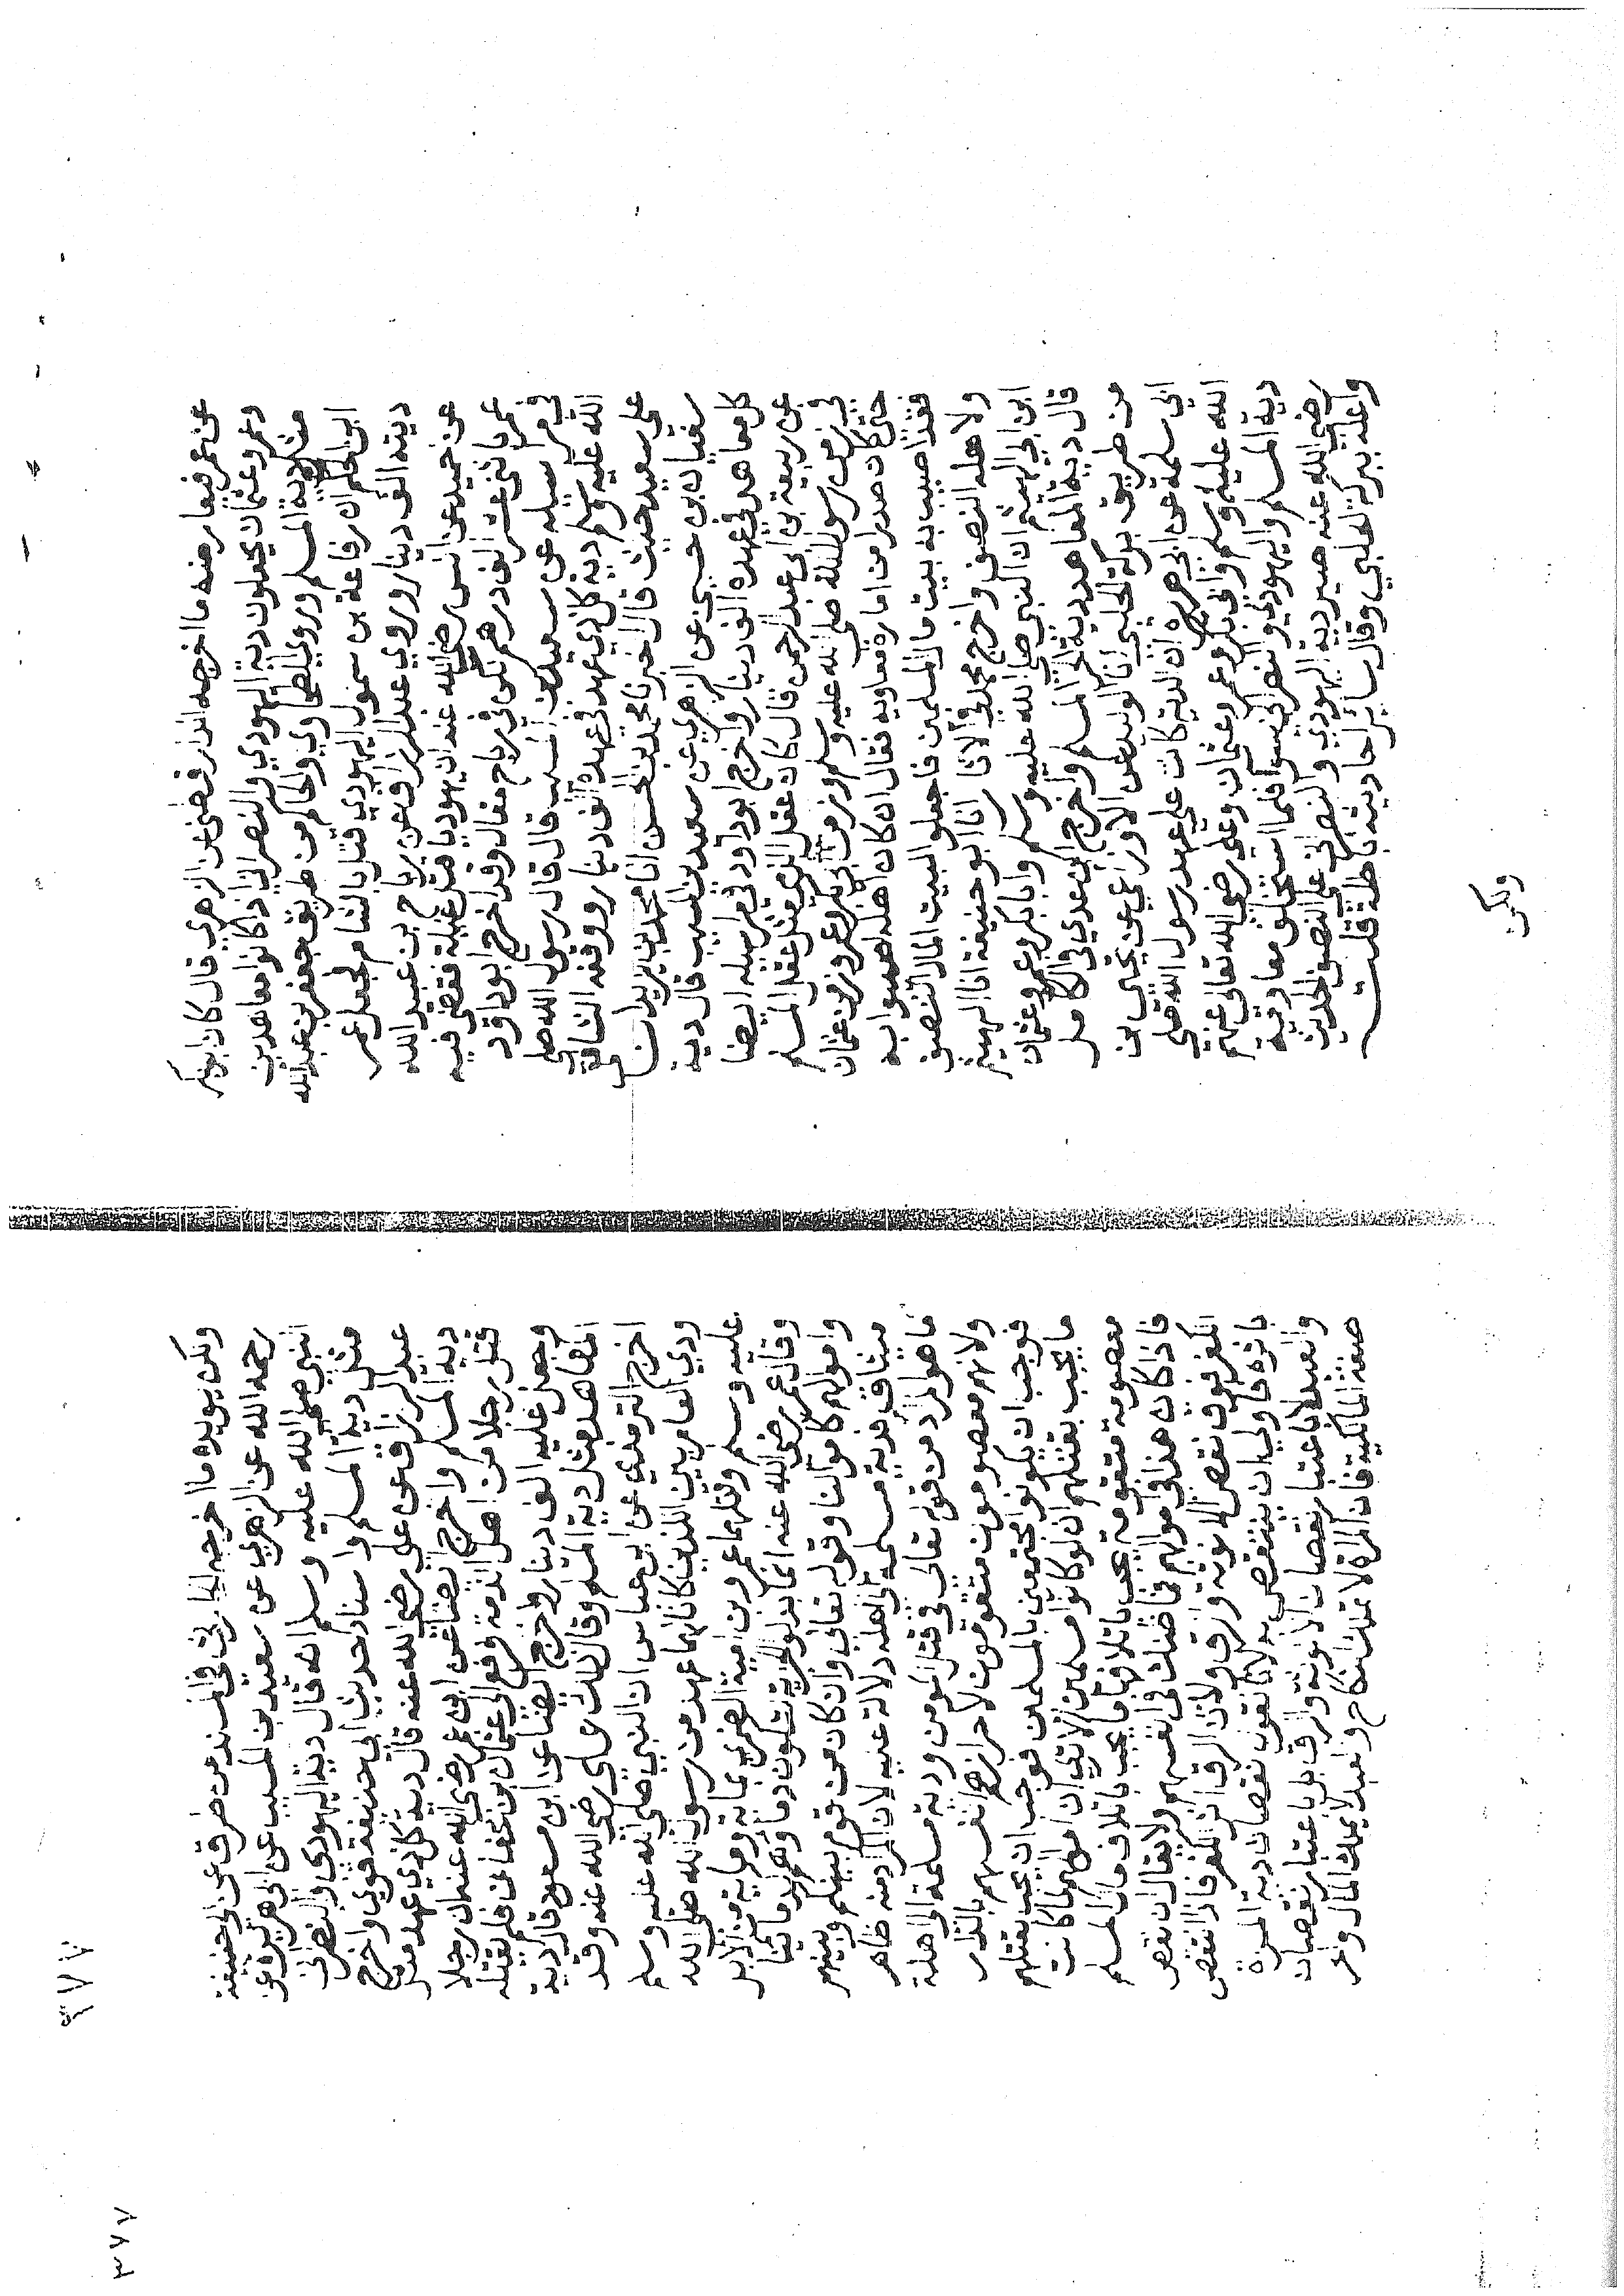 عن عمر فيعارضه ما اخرجه الدارقطني عن الزهري قال كان ابو بكر
وعمر وعثمان يجعلون دية اليهودي والنصراني اذ كانوا معاهدين
مثل دية المسلم وروي الطحاوي والحاكم من طريق جعفر بن عبد الله
ابن الحكم ان رفاعة بن سموئل اليهودي قتل بالشام فجعل عمر
ديته الف دينار وروي عبد الرزاق عن رباح بن عبيد الله
عن حميد عن انس رضي الله عنه ان يهوديا قتل غيلة فقضي فيه
عمر باثني عشر الف درهم لكن في رباح مقال وقد اخرج ابو داود
في مراسيله عن سعيد بن المسيب قال قال رسول الله صلى
الله عليه وسلم دية كل ذي عهد في عهده الف دينار ووقفه الشافعي
على سعيد حيث قال اخبرنا محمد بن الحسن انا محمد بن يزيد انا
سفيان بن حسين عن الزهري عن سعيد بن المسيب قال دية
كل معاهد في عهده الف دينار واخرج ابو داود في مراسيله ايضا
عن ربيعة بن ابي عبد الرحمن قال كان عقل الذمي مثل عقل المسلم
في زمن رسول الله صلى الله عليه وسلم وزمن ابي بكر وعمر وزمن عثمان
حتى كان صدرا من امارة معاوية فقال ان كان اهله اصيبوا به
فقد اصيب به بيت مال المسلمين فاجعلوا لبيت المال النصف
ولاهله النصف واخرج محمد في الاثار انا ابو حنيفة انا الهيثم
ابن ابي الهيثم ان النبي صلى الله عليه وسلم وابا بكر وعمر وعثمان
قال دية المعاهد دية الحر المسلم واخرج ابن عدي في الكامل
من طريق بركة الحلبي انا الوليد عن الاوزاعي عن يحيى بن
ابي سلمة عن ابي هريرة ان الدية كانت على عهد رسول الله صلى
الله عليه وسلم وابي بكر وعمر وعثمان وعلي رضي الله تعالى عنهم
دية المسلم واليهودي والنصراني سوا فلما استخلف معاوية
رضي الله عنه صير دية اليهودي والنصراني على النصف الحديث
واعله ببركة الحلبي وقال سائر احاديثه باطلة قلت
ولكن
٣٧٧
ولكن يويده ما اخرجه الحارثي في المسند من طرق عن ابي حنيفة
رحمه الله عن الزهري عن سعيد بن المسيب عن ابي هريرة عن
النبي صلى الله عليه وسلم انه قال دية اليهودي والنصراني
مثل دية المسلم واسناد حديث ابي حنيفة قوي واخرج
عبد الرزاق عن علي رضي الله عنه قال دية كل ذي عهد مثل
دية المسلم واخرج ايضا عن ابن عمر رضي الله عنه ان رجلا
قتل رجلا من اهل الذمة فرفع الى عثمان بن عفان فلم يقتله
وجعل عليه الف دينار واخرج ايضا عن ابن مسعود قال دية
المعاهد مثل دية المسلم وقال ذلك علي رضي الله عنه وقد
اخرج الترمذي عن ابن عباس ان النبي صلى الله عليه وسلم
ودي العامريين اللذين كان لهما عهد من رسول الله صلى الله
عليه وسلم وقتلهما عمرو بن امية الضمري بماية وماية من الابل
وقال عمر رضي الله عنه انما بذلوا الجزية لتكون دماؤهم كدمائنا
واموالهم كاموالنا وقوله تعالى وان كان من قوم بينكم وبينهم
ميثاق فدية مسلمة الى اهله دلالة عليه لان المراد منه ظاهر
ما هو المراد من قوله تعالى في قتل المومن ودية مسلمة الى اهله
ولانهم معصومون متقومون لاحرازهم انفسهم بالدار
فوجب ان يكونوا مجتمعين بالمسلمين فوجب ان يجب بقتلهم
ما يجب بقتلهم ان لو كانوا مسلمين الا ترى ان اموالهم لما كانت
معصومة متقومة يجب باتلافها ما يجب باتلاف مال المسلم
فاذا كان هذا في اموالهم فما ظنك في انفسهم ولا يقال ان نقص
الكفر فوق نقص الانوثة والرق ولان الرق اثر الكفر فاذا انتقص
باثره فاولى ان ينتقص به لانا نقول نقصان دية المراة
والعبد لا باعتبار نقصان الانوثة والرق بل باعتبار نقصان
صفة المالكية فان المراة لا تملك النكاح والعبد لا يملك المال والحر
٣٧٧